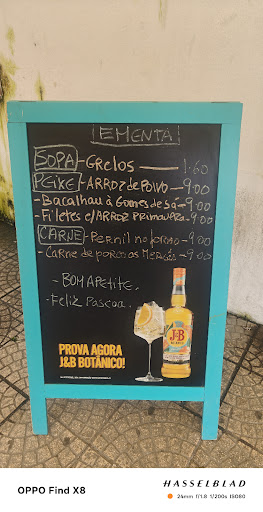 EMENTA
SOPA - GRELOS — 1.60
PEIXE - ARROZ de POLVO — 9.00
- Bacalhau à Gomes de Sá - 9.00
- Filetes c/ARROZ PRIMAVERA - 9.00
CARNE - Pernil no forno - 9.00
- Carne de porco às Mercês - 9.00
- BOM APetite.
- Feliz Pascoa.
J&B
PROVA AGORA
J&B BOTÂNICO!
OPPO Find X8
HASSELBLAD
24mm f/1.8 1/200s ISO80